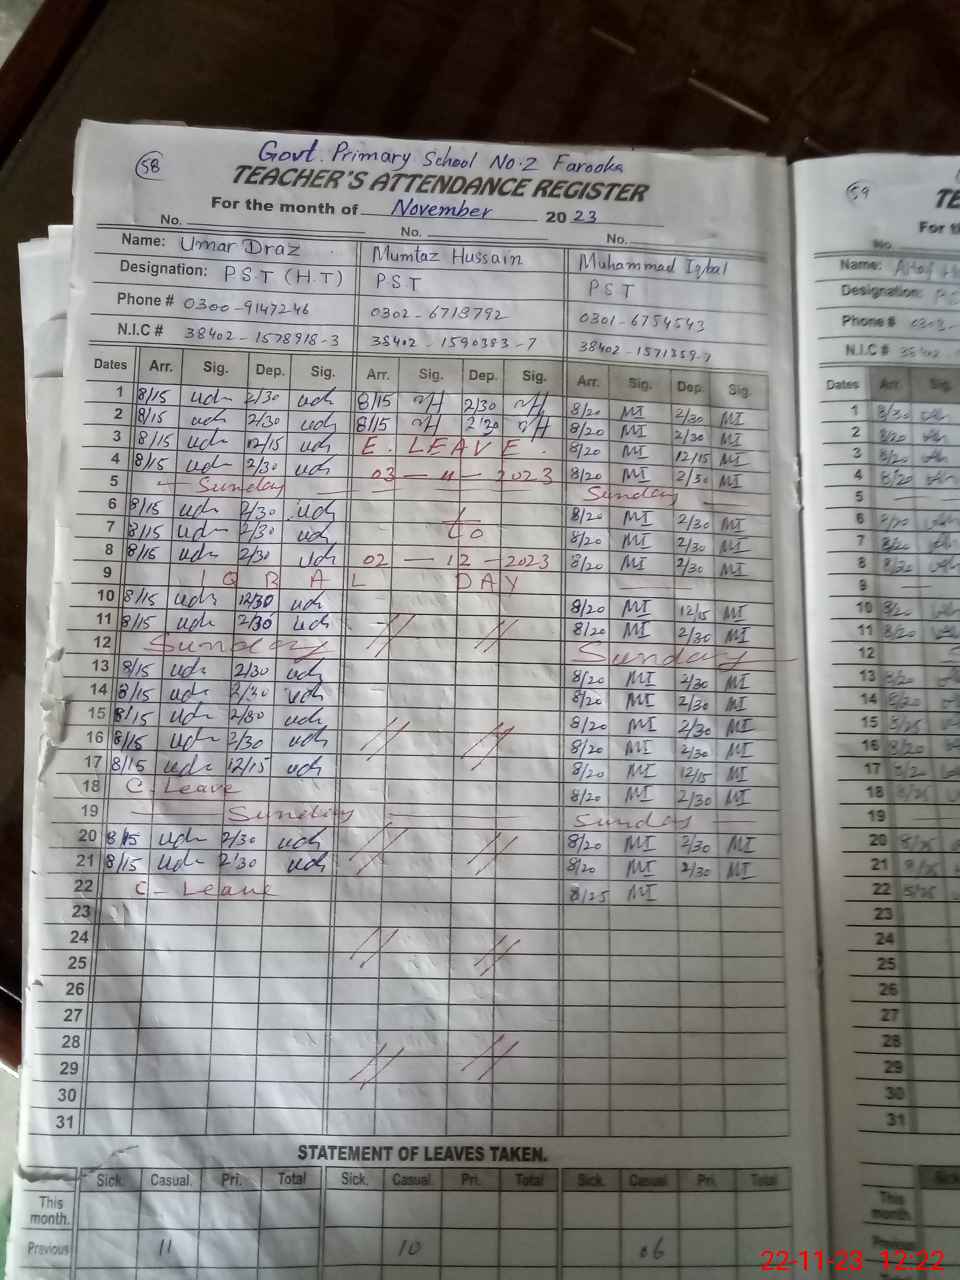 58 Govt. Primary School No.2 Farooka
TEACHER'S ATTENDANCE REGISTER
For the month of November 2023
No. No. No.
Name: Umar Draz Mumtaz Hussain Muhammad Iqbal
Designation: P.S.T (H.T) PST PST
Phone # 0300-9147246 0302-6713792 0301-6754543
N.I.C # 38402-1578918-3 38402-1590383-7 38402-1571359-7
Dates Arr. Sig. Dep. Sig. Arr. Sig. Dep. Sig. Arr. Sig. Dep. Sig.
1 8/15 udr 2/30 udr 8/15 MH 2/30 MH 8/20 MI 2/30 MI
2 8/15 udr 2/30 udr 8/15 MH 2/30 MH 8/20 MI 2/30 MI
3 8/15 udr 12/15 udr E. LEAVE. 8/20 MI 12/15 MI
4 8/15 udr 2/30 udr 03-11-2023 8/20 MI 2/30 MI
5 Sunday Sunday
6 8/15 udr 2/30 udr to 8/20 MI 2/30 MI
7 8/15 udr 2/30 udr 8/20 MI 2/30 MI
8 8/15 udr 2/30 udr 02-12-2023 8/20 MI 2/30 MI
9 IQBAL DAY
10 8/15 udr 12/30 udr 8/20 MI 12/15 MI
11 8/15 udr 2/30 udr 8/20 MI 2/30 MI
12 Sunday Sunday
13 8/15 udr 2/30 udr 8/20 MI 2/30 MI
14 8/15 udr 2/30 udr 8/20 MI 2/30 MI
15 8/15 udr 2/30 udr 8/20 MI 2/30 MI
16 8/15 udr 2/30 udr 8/20 MI 2/30 MI
17 8/15 udr 12/15 udr 8/20 MI 12/15 MI
18 C-Leave 8/20 MI 2/30 MI
19 Sunday Sunday
20 8/15 udr 2/30 udr 8/20 MI 2/30 MI
21 8/15 udr 2/30 udr 8/20 MI 2/30 MI
22 C-Leave 8/25 MI
23
24
25
26
27
28
29
30
31
STATEMENT OF LEAVES TAKEN.
Sick. Casual. Pri. Total Sick. Casual. Pri. Total Sick. Casual Pri. Total
This month.
Previous 11 10 06
59
TE
For th
No.
Name:
Designation: PS
Phone # 0303-
N.I.C # 38402
Dates Arr. Sig.
1 8/30
2 8/20
3 8/20
4 8/20
5
6
7 8/20
8 8/20
9
10 8/20
11 8/20
12
13 8/20
14 8/20
15 8/25
16 8/20
17 8/20
18 8/25
19
20 8/25
21 8/25
22
23
24
25
26
27
28
29
30
31
Sick
This month.
Previous
22-11-23 12:22